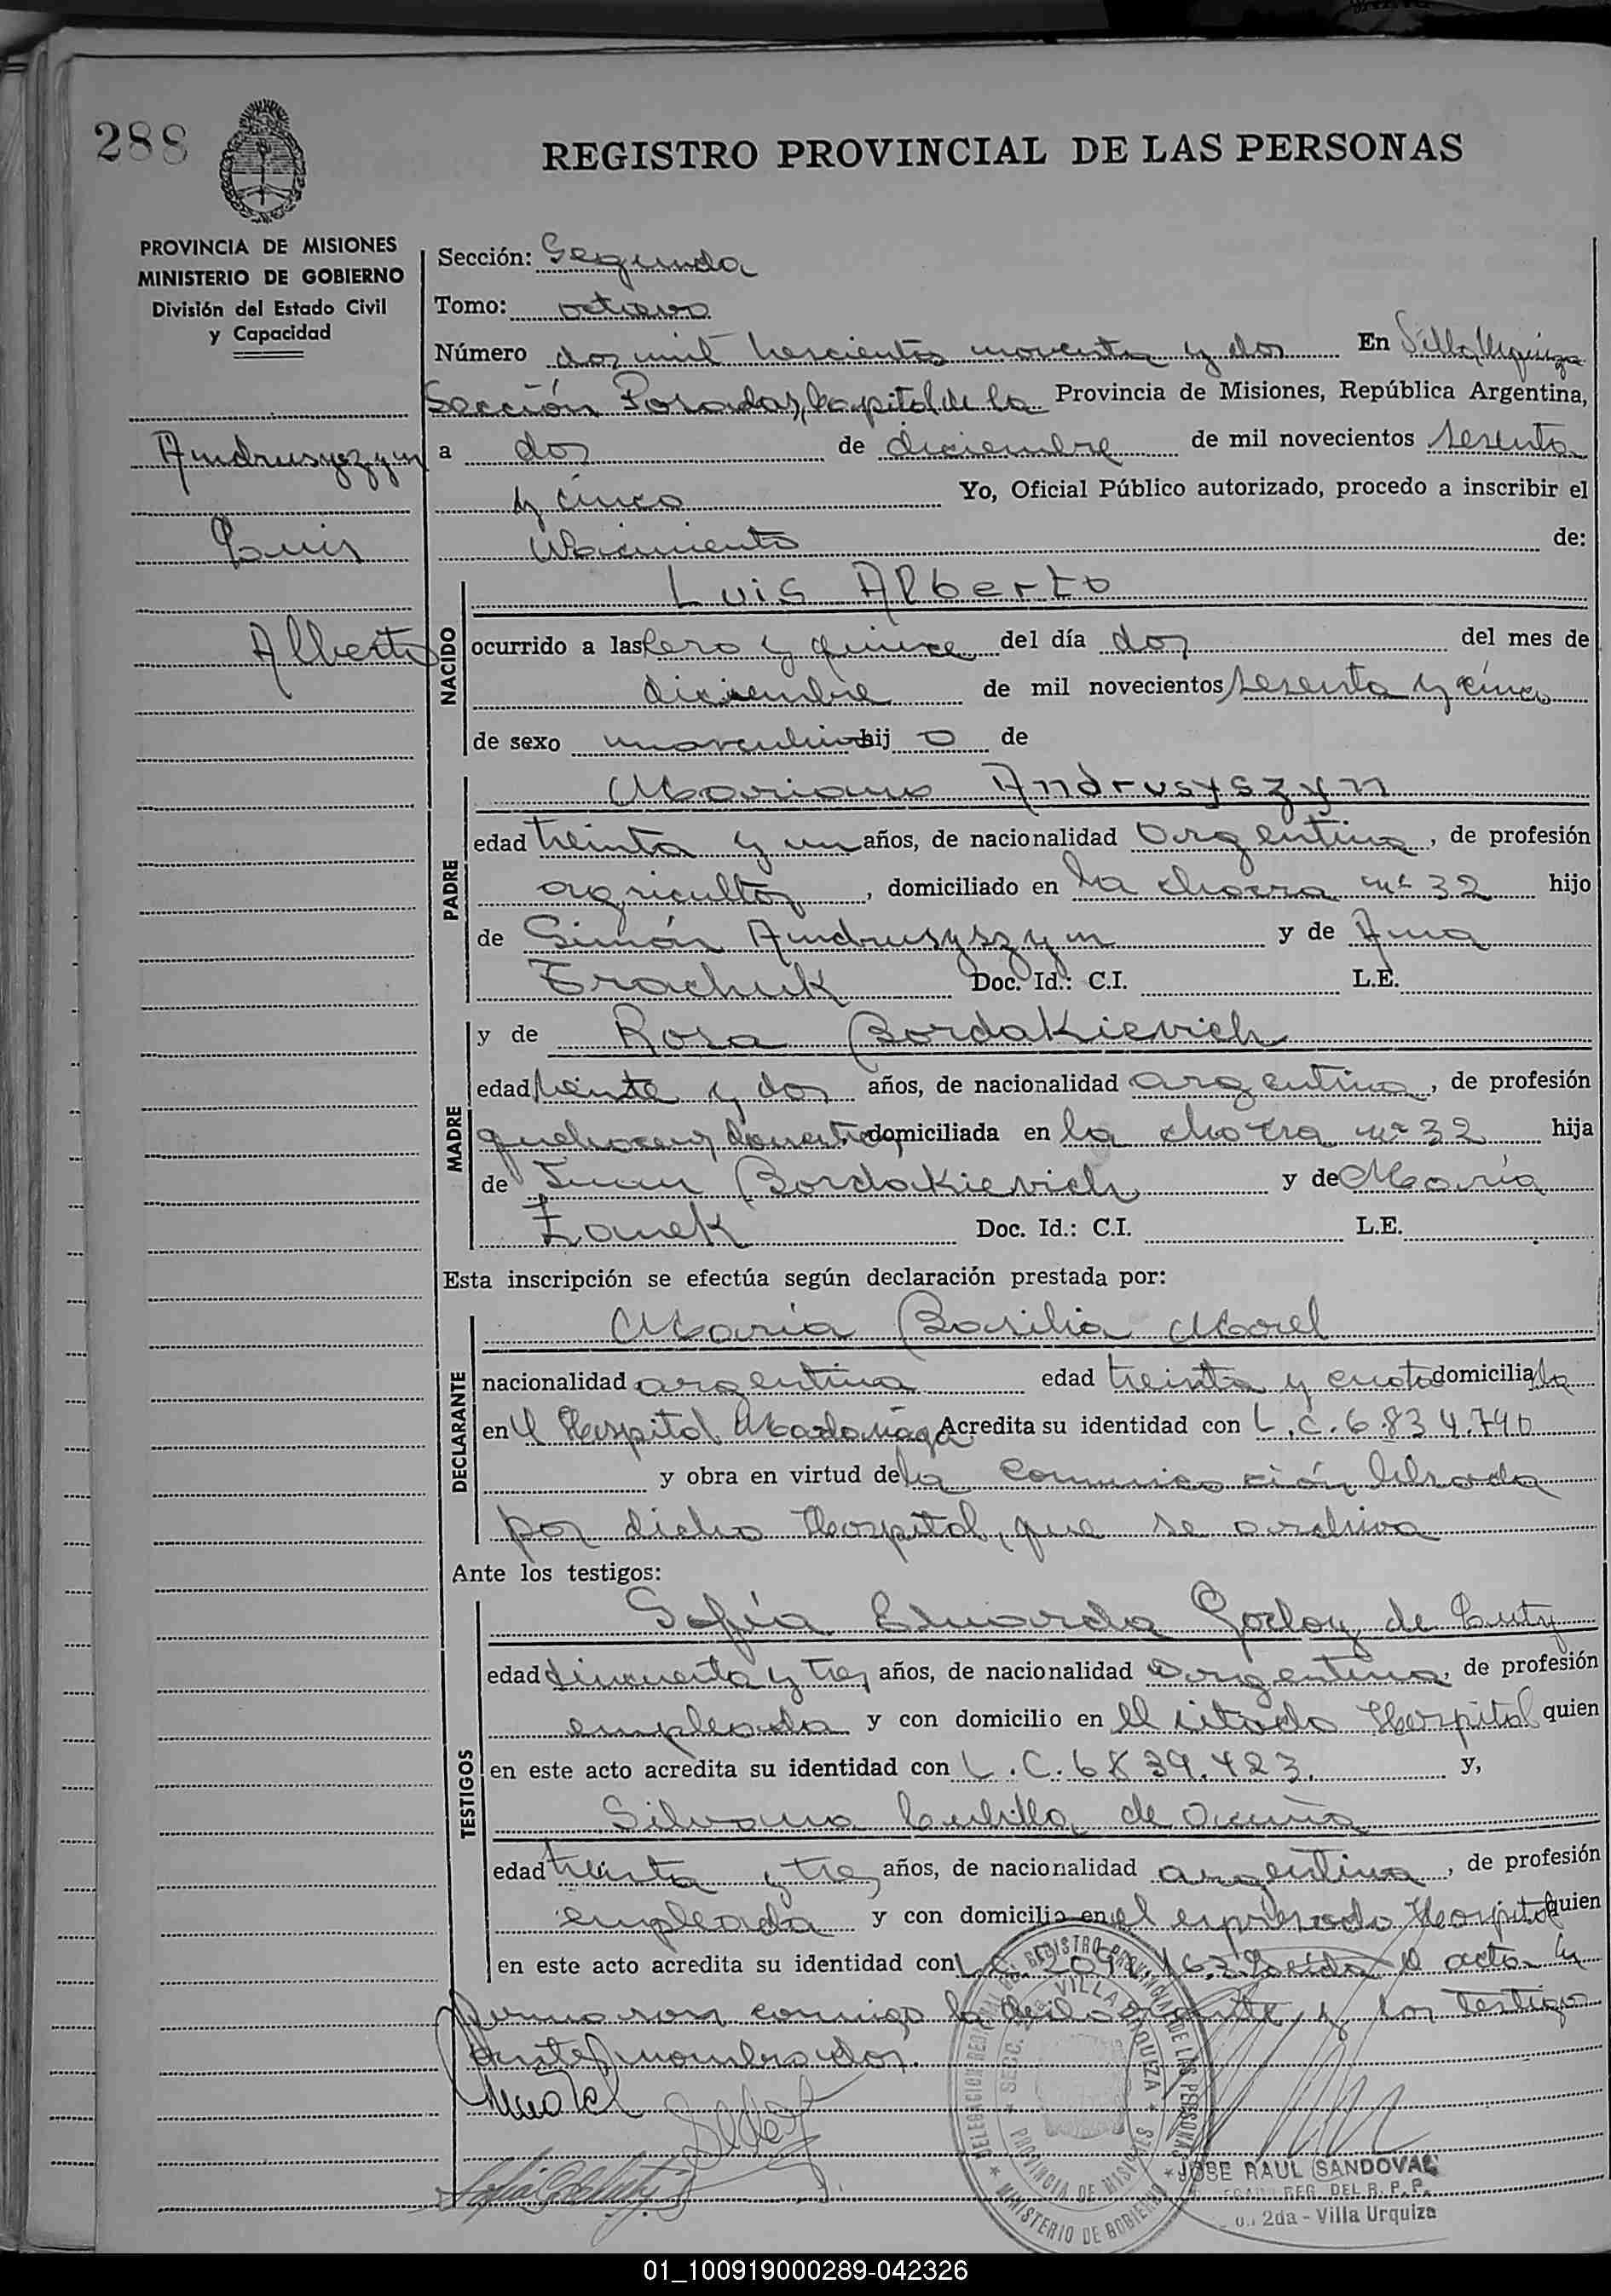 288
REGISTRO PROVINCIAL DE LAS PERSONAS
PROVINCIA DE MISIONES
MINISTERIO DE GOBIERNO
División del Estado Civil
y Capacidad
Andrusyszyn
Luis
Alberto
Sección: Segunda
Tomo: octavo
Número dos mil trescientos noventa y dos En Villa Urquiza
Sección Posadas, Capital de la Provincia de Misiones, República Argentina,
a dos de diciembre de mil novecientos sesenta
y cinco Yo, Oficial Público autorizado, procedo a inscribir el
Nacimiento de:
NACIDO
Luis Alberto
ocurrido a las cero y quince del día dos del mes de
diciembre de mil novecientos sesenta y cinco
de sexo masculino hij o de
PADRE
Mariano Andrusyszyn
edad treinta y un años, de nacionalidad Argentina, de profesión
agricultor, domiciliado en la chacra nº 32 hijo
de Simón Andrusyszyn y de Ana
Trachuk Doc. Id.: C.I. L.E.
MADRE
y de Rosa Bordakievich
edad treinta y dos años, de nacionalidad argentina, de profesión
quehaceres domésticos domiciliada en la chacra nº 32 hija
de Juan Bordakievich y de María
Zanek Doc. Id.: C.I. L.E.
Esta inscripción se efectúa según declaración prestada por:
DECLARANTE
María Basilia Morel
nacionalidad argentina edad treinta y cuatro domiciliada
en el Hospital Madariaga Acredita su identidad con L.C. 6.834.740
y obra en virtud de la comunicación librada
por dicho Hospital, que se archiva
Ante los testigos:
TESTIGOS
Sofía Eduarda Godoy de
edad cincuenta y tres años, de nacionalidad argentina, de profesión
empleada y con domicilio en el citado Hospital quien
en este acto acredita su identidad con L.C. 6839.423. y,
Silvana Cubilla de Ocuña
edad treinta y tres años, de nacionalidad argentina, de profesión
empleada y con domicilio en el expresado Hospital quien
en este acto acredita su identidad con Leída el acta la
firmaron conmigo la declarante y los testigos
antes nombrados.
DELEGACION REGIONAL DEL REGISTRO PROVINCIAL DE LAS PERSONAS
MINISTERIO DE GOBIERNO
SECC. 2da. VILLA URQUIZA
PROVINCIA DE MISIONES
JOSE RAUL SANDOVAL
REG. DEL R. P. P.
2da - Villa Urquiza
01_100919000289-042326